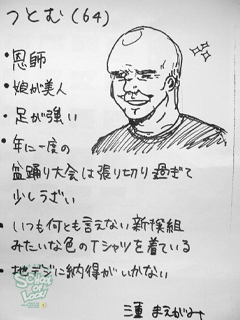 つとむ(64)
・恩師
・娘が美人
・足が強い
・年に一度の
盆踊り大会は張り切り過ぎて
少しうざい
・いつも何とも言えない新撰組
みたいな色のTシャツを着ている
・地デジに納得がいかない
SCHOOL OF LOCK!
三重 まえがみ